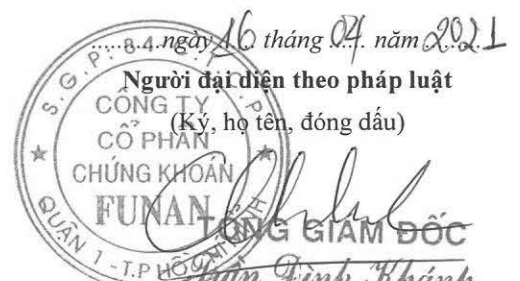 ngày 16 tháng 04 năm 2021
Người đại diện theo pháp luật
(Ký, họ tên, đóng dấu)
CÔNG TY
CỔ PHẦN
CHỨNG KHOÁN
FUNAN
QUẬN 1 - T.P HỒ CHÍ MINH
TỔNG GIÁM ĐỐC
Đình Khánh